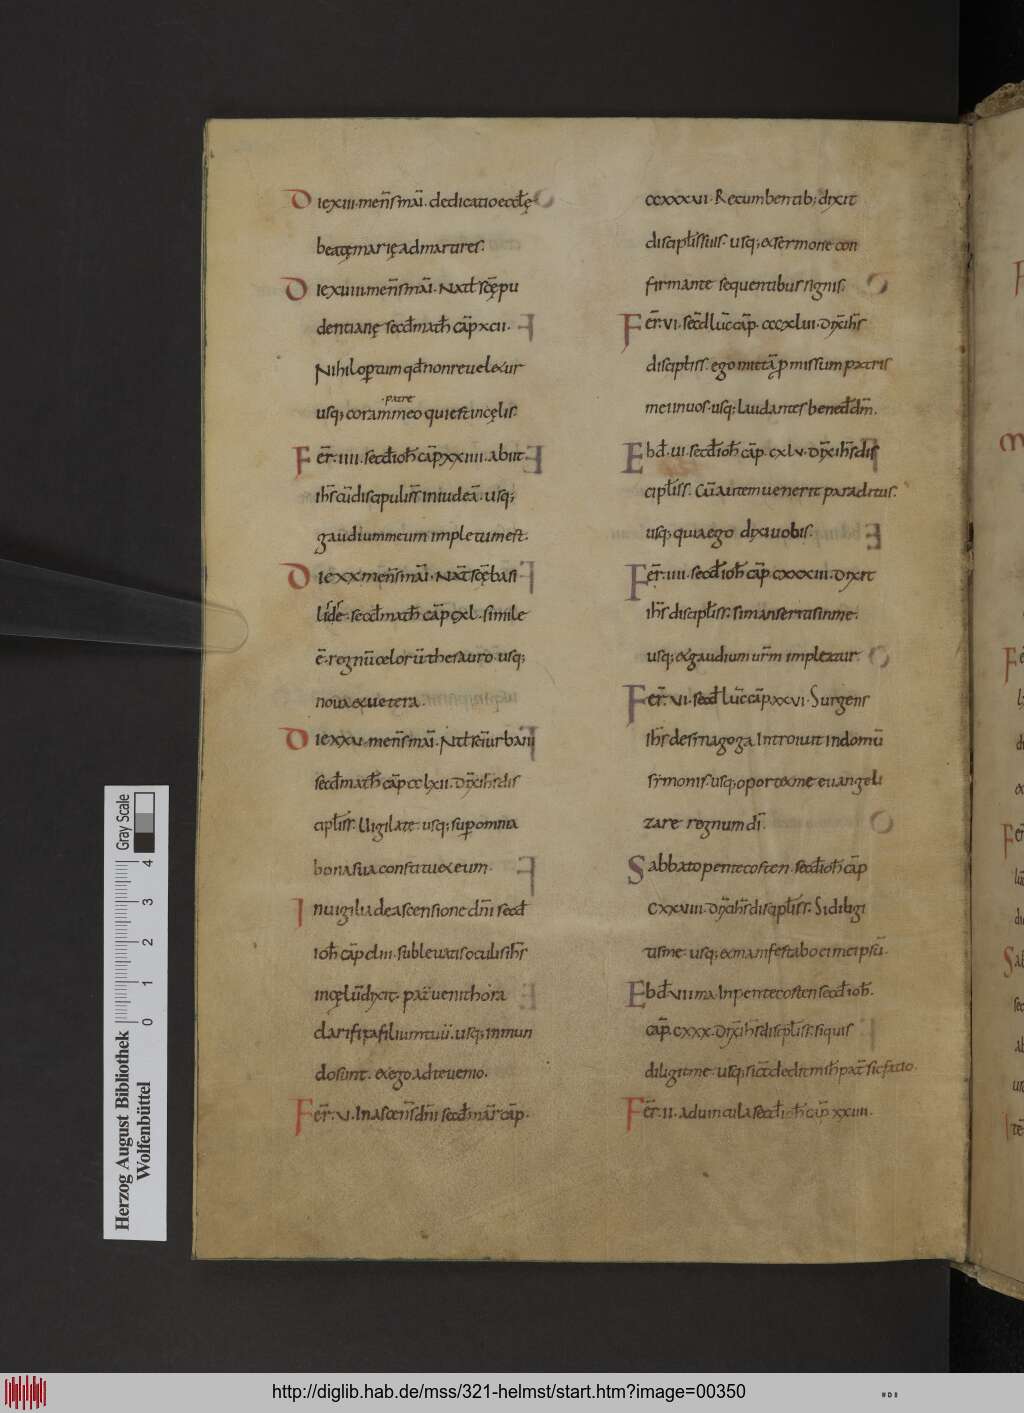 Die xiii. mens̄ mai. dedicatio eccłę
beatę marię ad martires.
Die xuiiii mens̄ mai. Nat̄ scę̄ pu
dentianę secd̄ math̄ cap̄ xcii.
Nihil optum qđ non reueletur
patre
usq; coram meo qui est in cęlis.
Fer̄. iiii. secd̄ ioh̄ cap̄ xxiiii. abiit
ih̄s cū discipulis̄ in iudeā. usq;
gaudium meum impletum est.
Die xx mens̄ mai. Nat̄ scę̄ basi
secd̄ math̄ cap̄ cxl. simile
ē. regnū cęlorū thesauro. usq;
noua et uetera.
Die xxv. mens̄ mai. Nat̄ scī urbani
secd̄ math̄ cap̄ cclxii. dix̄ ih̄s dis
cipłis̄. Uigilate. usq; sup omnia
bona sua constituet eum.
In uigilia de ascensione dn̄i secđ
ioh̄ cap̄ clii. subleuatis oculis ih̄s
in cęlū dixit. pat̄ uenit hora
clarifica filium tuū. usq; in mun
do sunt. et ego ad te uenio.
Fer̄. v. In ascens̄ dn̄i secd̄ mar̄ cap̄.
ccxxxvi. Recumbentib; dixit
discipłis suis. usq; et sermone con
firmante sequentibus signis.
Fer̄. vi. secd̄ luc̄ cap̄. cccxlui. dix̄ ih̄s
discipłis̄. ego mittā pmissum patris
mei in uos. usq; laudantes bened̄ dm̄.
Ebđ. ui. secd̄ ioh̄ cap̄. cxlv. dix̄ ih̄s dis
cipłis̄. Cū autem uenerit paraclitus.
usq; quia ego dixi uobis.
Fer̄. iiii. secd̄ ioh̄ cap̄ cxxxiii. dixit
ih̄s discipłis̄. si manseritis in me.
usq; et gaudium ur̄m impleatur.
Fer̄. vi. secđ luc̄ cap̄ xxvi. Surgens
ih̄s de synagoga Introiuit in domū
symonis. usq; oportet me euangeli
zare regnum dī.
Sabbato pentecosten. secd̄ ioh̄ cap̄
cxxviii. dix̄ ih̄s discipłis̄. Si diligi
tis me. usq; et manifestabo ei me ipsū.
Ebđ. vii ma In pentecosten secd̄ ioh̄.
cap̄. cxxx. dix̄ ih̄s discipłis̄. si quis
diligit me. usq; sic̄ dedit mih̄ pat̄ sic facio.
Fer̄. ii. ad uincula secd̄ ioh̄ cap̄ xxiiii.
Herzog August Bibliothek
Wolfenbüttel
0 1 2 3 4
Gray Scale
http://diglib.hab.de/mss/321-helmst/start.htm?image=00350